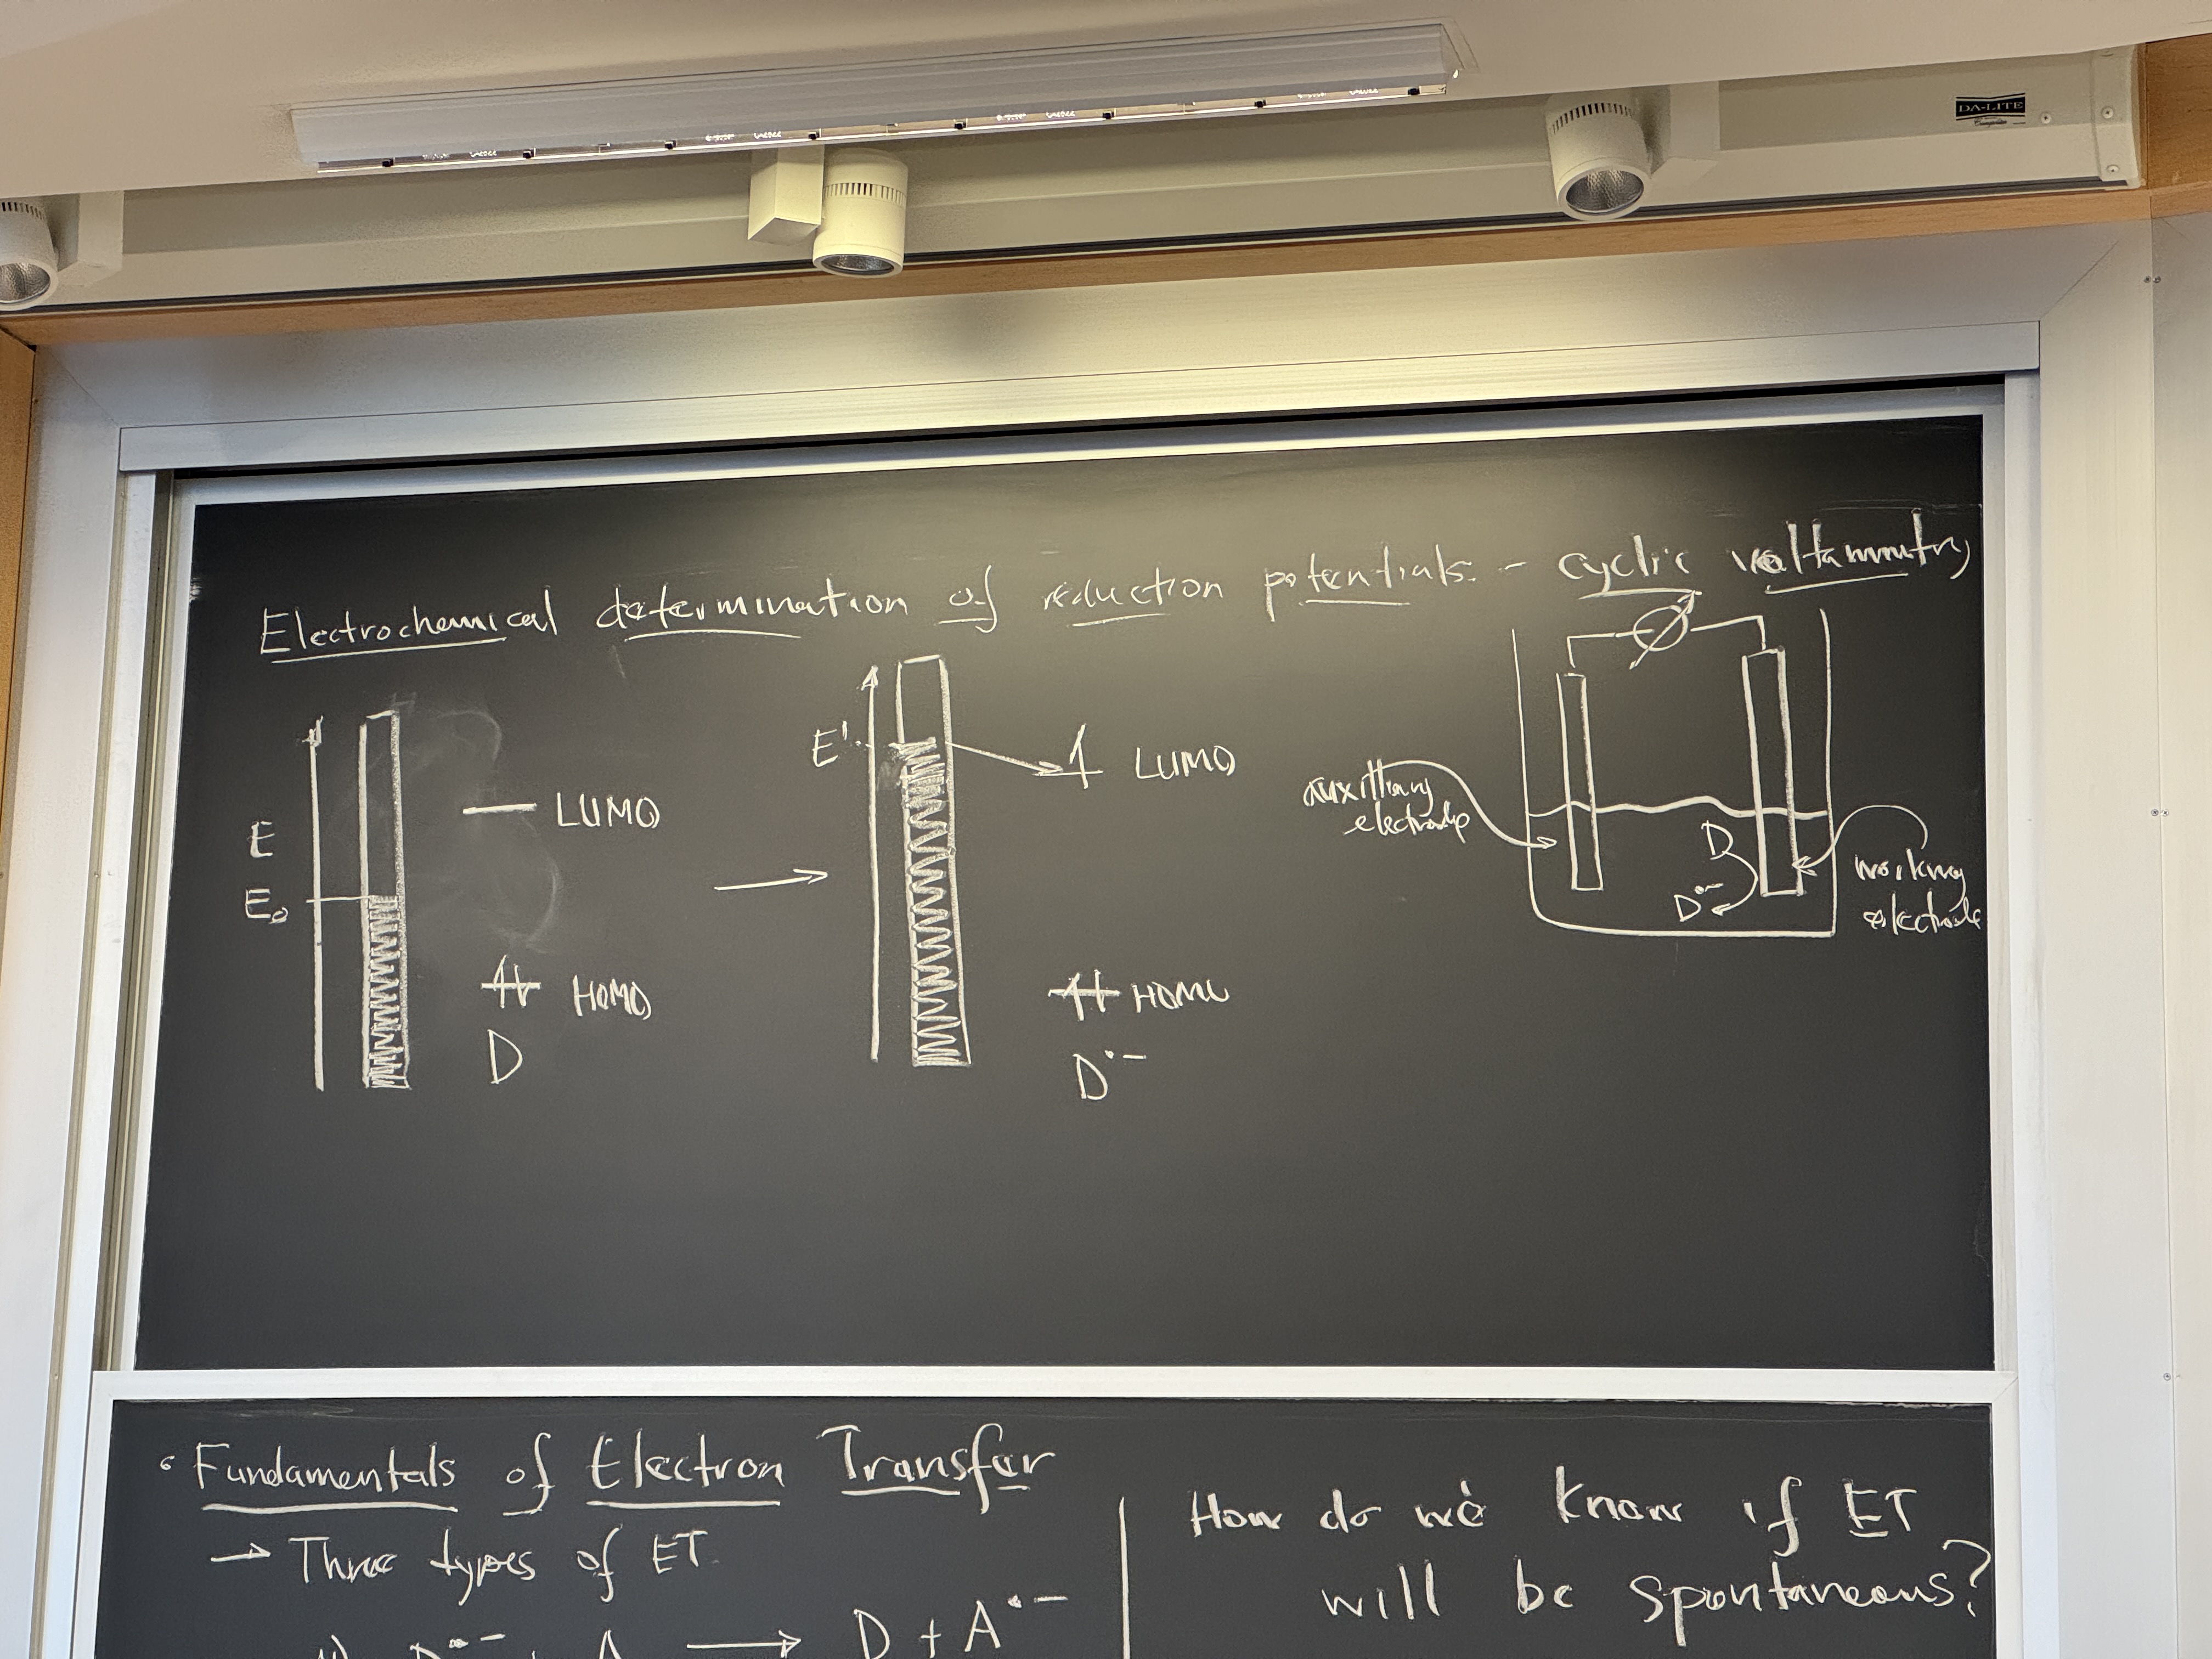 DA-LITE
Electrochemical determination of reduction potentials. - cyclic voltammetry
E
E₀
LUMO
HOMO
D
E'
LUMO
HOMO
D•−
auxilliary
electrode
D
D•−
working
electrode
• Fundamentals of Electron Transfer
→ Three types of ET
D•− + A → D + A•−
How do we know if ET
will be spontaneous?